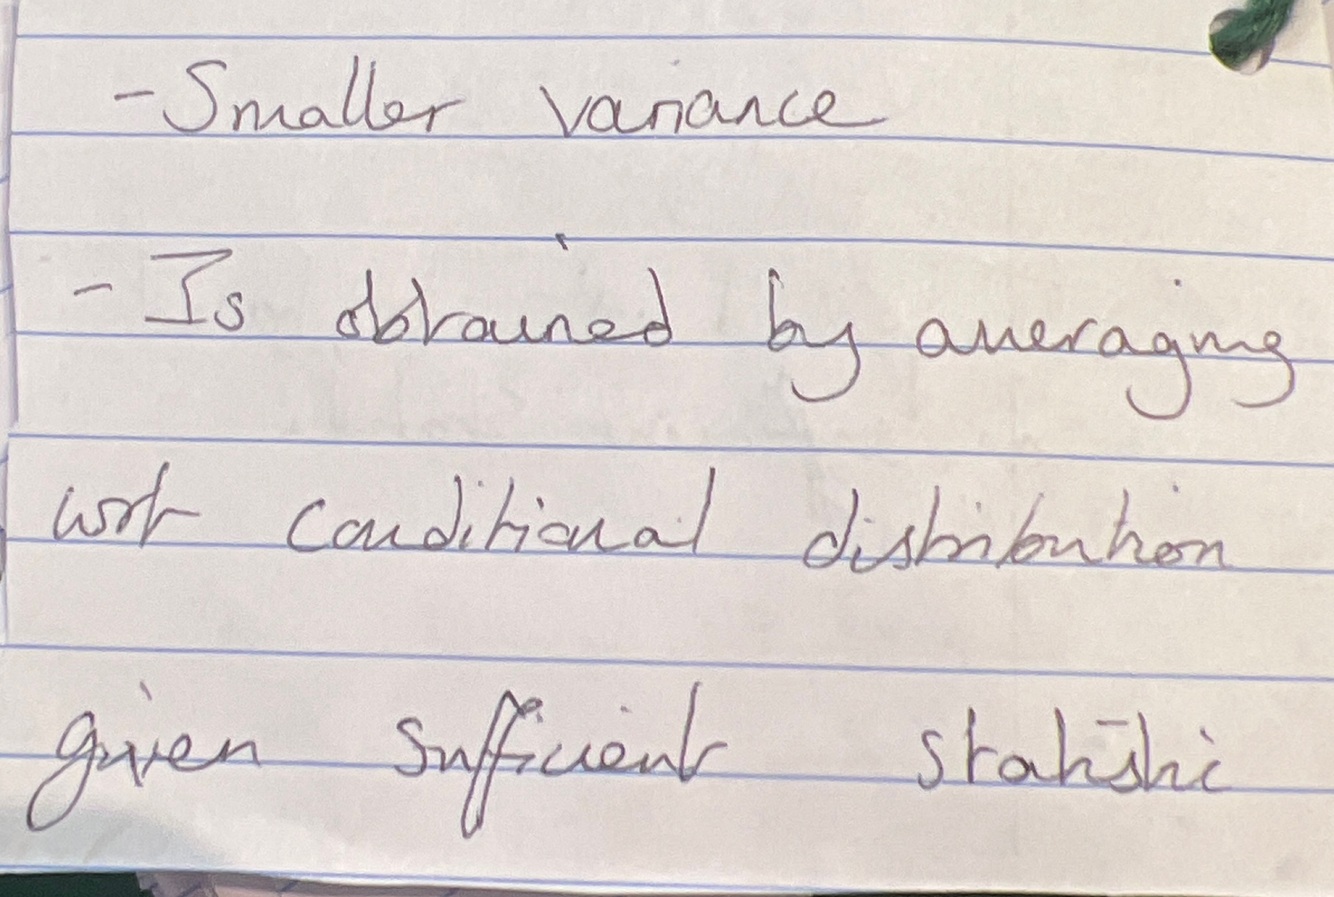 - Smaller variance
- Is obtained by averaging
wrt conditional distribution
given sufficient statistic